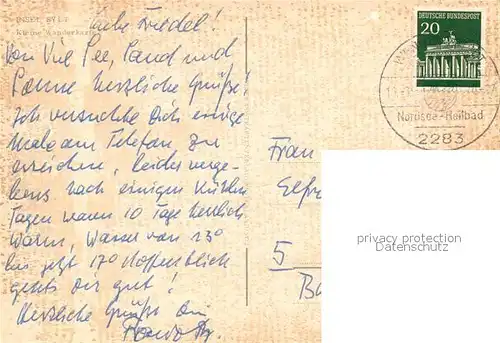 INSEL SYLT
Kleine Wanderkarte
Liebe Friedel!
Von viel See, Sand und
Sonne herzliche Grüße!
Ich versuchte Dich einige
Male am Telefon zu
erreichen, leider verge-
bens. Nach einigen kühlen
Tagen waren 10 Tage herrlich
warm, Wasser von 23°
bis jetzt 17° Hoffentlich
gehts Dir gut!
Herzliche Grüße Dein
DEUTSCHE BUNDESPOST
20
Nordsee-Heilbad
2283
Frau
Elfr
5
privacy protection
Datenschutz